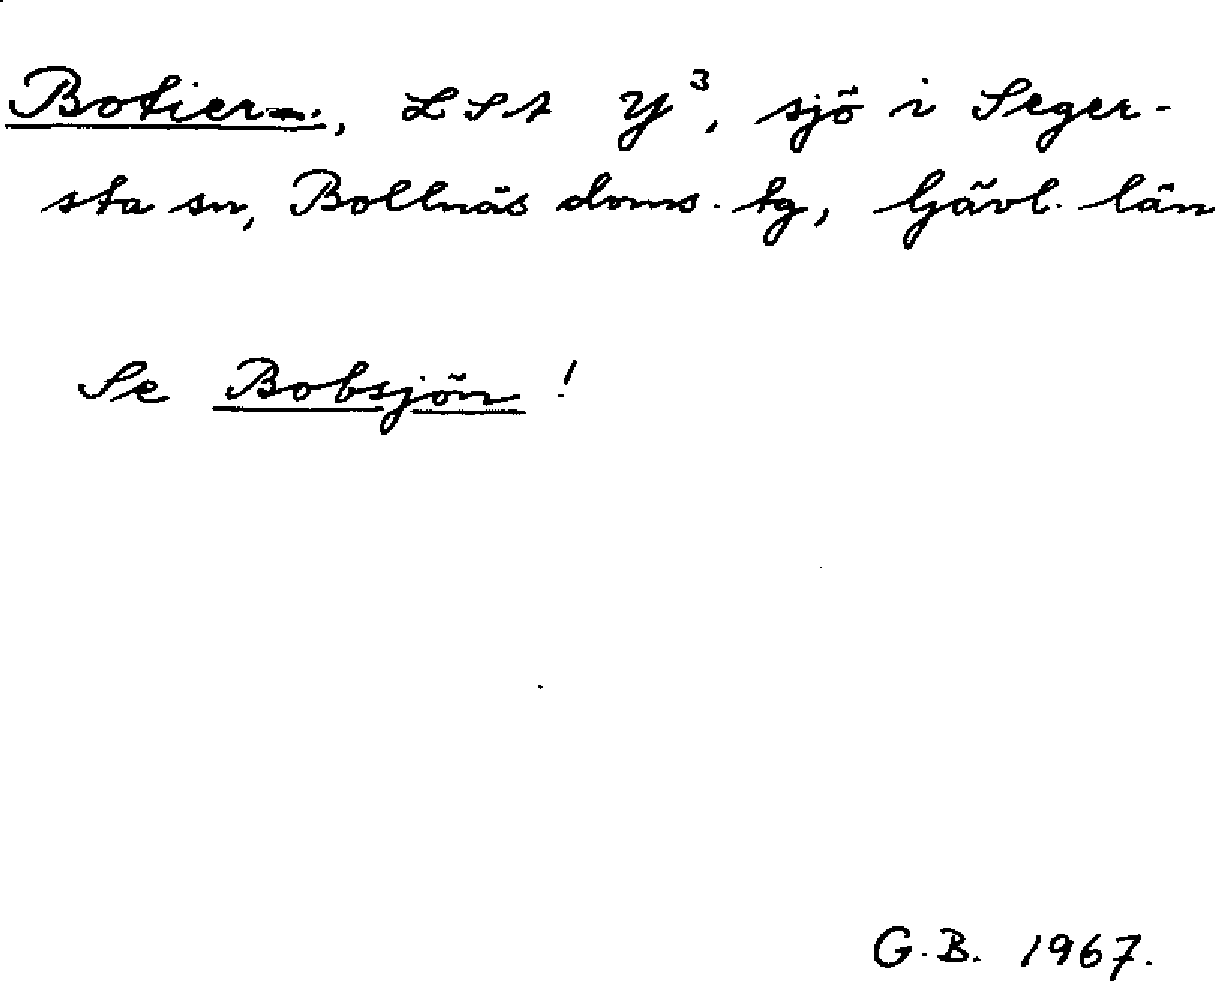 Botiern, LSA Y³, sjö i Seger-
sta sn, Bollnäs doms. tg, Gävl. län
Se Bobsjön !
G.B. 1967.